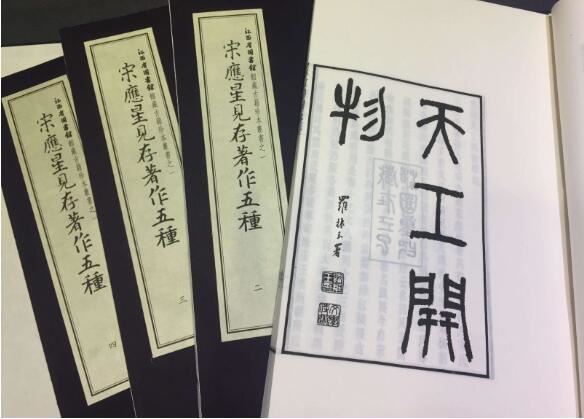 天工開
物
羅振玉署
江西省圖書館館藏古籍珍本叢書之一
宋應星見存著作五種
二
江西省圖書館館藏古籍珍本叢書之一
宋應星見存著作五種
三
江西省圖書館館藏古籍珍本叢書之一
宋應星見存著作五種
四